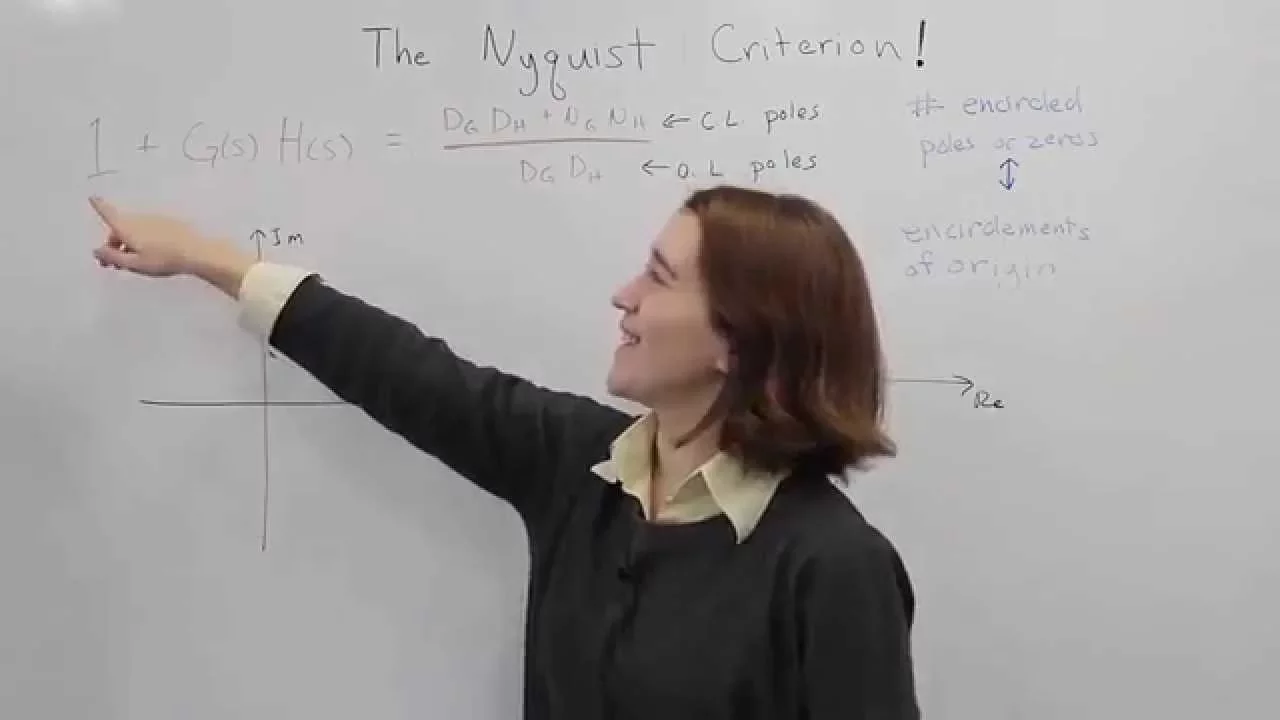 The Nyquist Criterion!
1 + G(s) H(s) = 
DG DH + NG NH ← C.L. poles
DG DH ← O.L poles
# encircled
poles or zeros
↕
encirclements
of origin
Im
Re